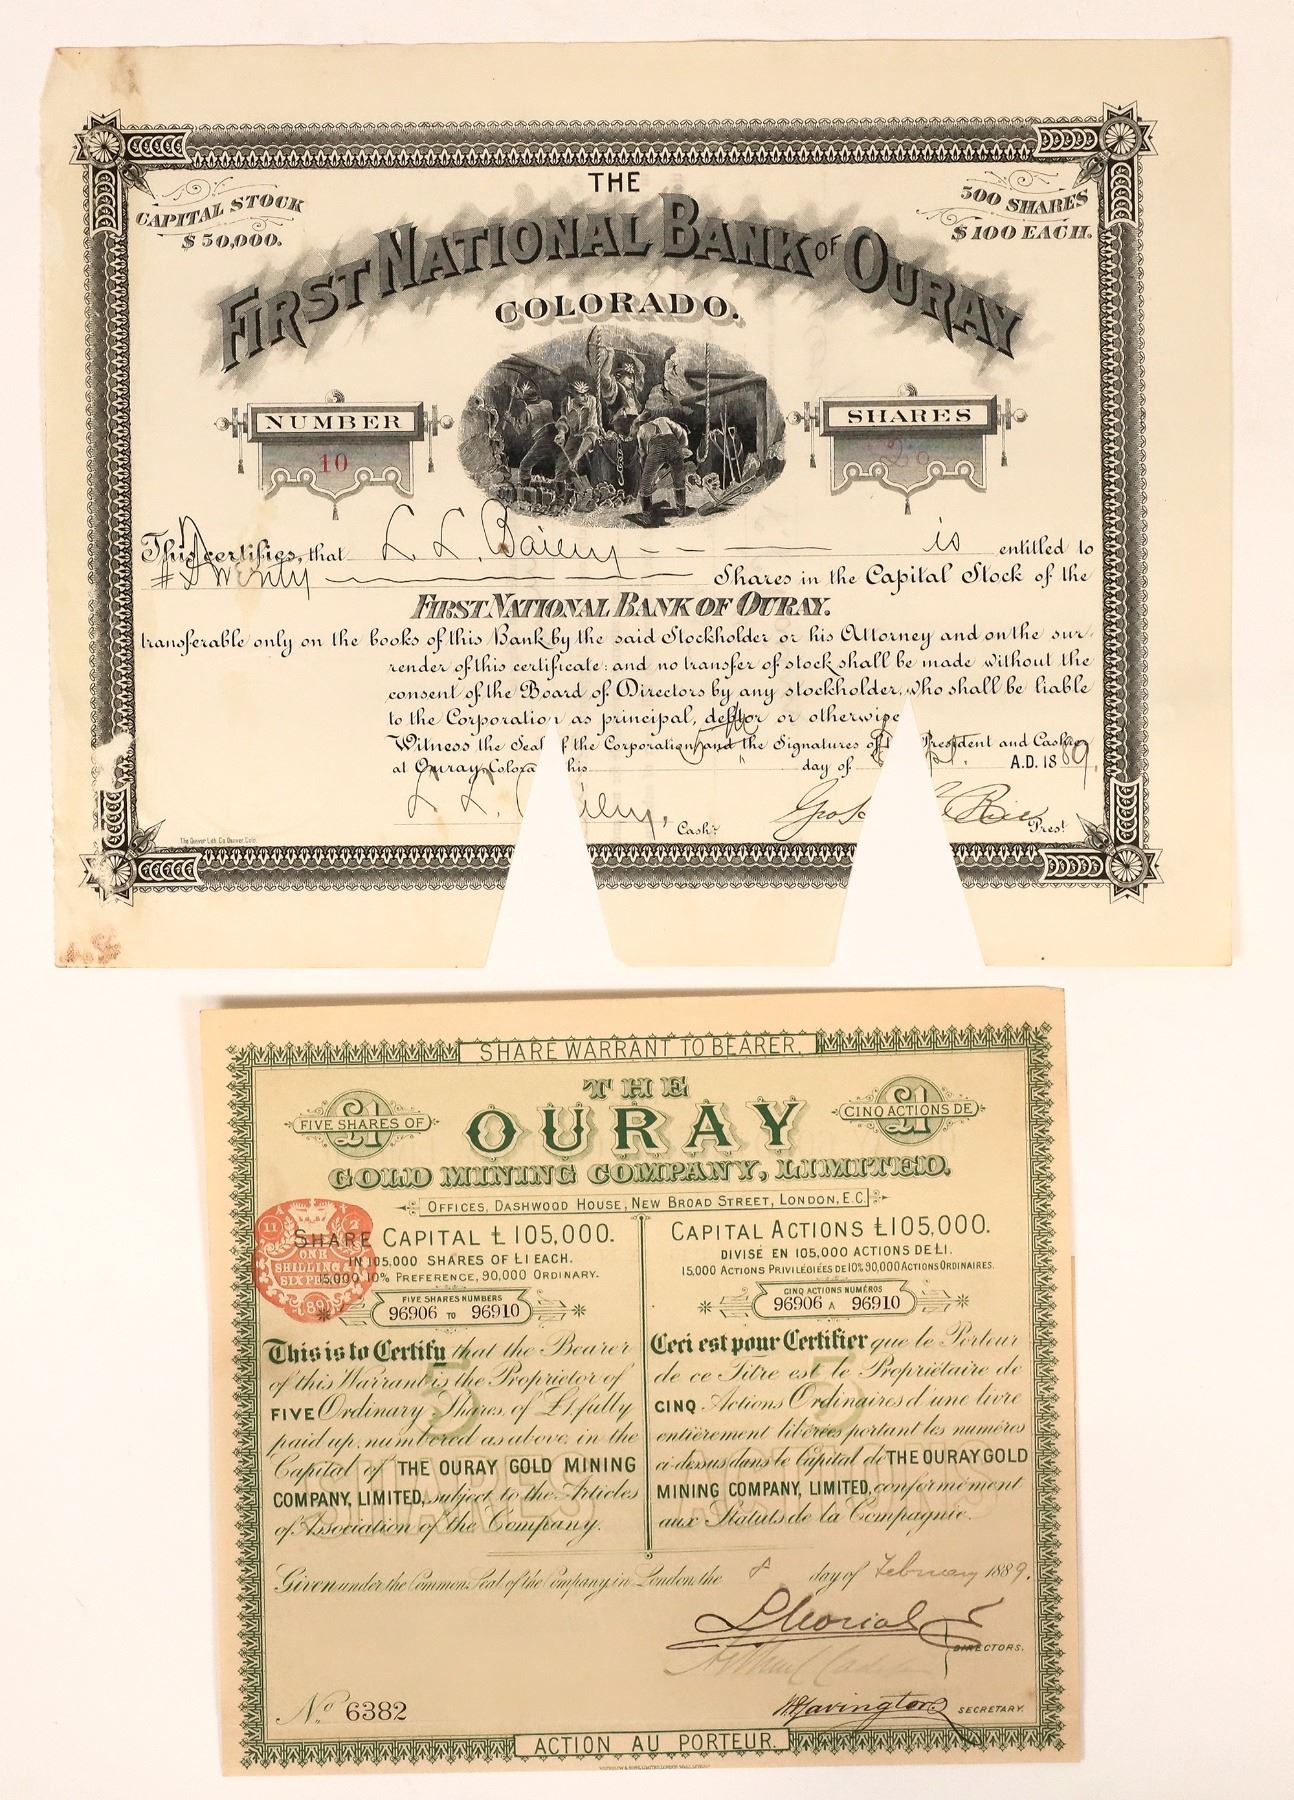 THE
FIRST NATIONAL BANK OF OURAY
COLORADO.
CAPITAL STOCK
$ 50,000.
500 SHARES
$ 100 EACH.
NUMBER
10
SHARES
20
This certifies, that L. L. Bailey is entitled to
Twenty Shares in the Capital Stock of the
FIRST NATIONAL BANK OF OURAY.
transferable only on the books of this Bank by the said Stockholder or his Attorney and on the sur-
render of this certificate: and no transfer of stock shall be made without the
consent of the Board of Directors by any stockholder, who shall be liable
to the Corporation as principal, debtor or otherwise
Witness the Seal of the Corporation and the Signatures of President and Cashier
at Ouray, Colora his day of Sept. A.D. 1889.
L. L. Bailey, Cashr
Pres!
The Denver Lith. Co. Denver, Colo.
SHARE WARRANT TO BEARER.
THE
OURAY
GOLD MINING COMPANY, LIMITED.
FIVE SHARES OF £1
CINQ ACTIONS DE £1
OFFICES, DASHWOOD HOUSE, NEW BROAD STREET, LONDON, E.C.
SHARE CAPITAL £105,000.
IN 105,000 SHARES OF £1 EACH.
15,000 10% PREFERENCE, 90,000 ORDINARY.
FIVE SHARES NUMBERS
96906 TO 96910
11 2
ONE
SHILLING &
SIXPENCE
89
This is to Certify that the Bearer
of this Warrant is the Proprietor of
FIVE Ordinary Shares of £1, fully
paid up, numbered as above, in the
Capital of THE OURAY GOLD MINING
COMPANY, LIMITED, subject to the Articles
of Association of the Company.
5
SHARES
CAPITAL ACTIONS £105,000.
DIVISÉ EN 105,000 ACTIONS DE £1.
15,000 ACTIONS PRIVILÉGIÉES DE 10% 90,000 ACTIONS ORDINAIRES.
CINQ ACTIONS NUMÉROS
96906 A 96910
Ceci est pour Certifier que le Porteur
de ce Titre est le Propriétaire de
CINQ Actions Ordinaires d'une livre
entièrement libérées portant les numéros
ci-dessus dans le Capital de THE OURAY GOLD
MINING COMPANY, LIMITED, conformément
aux Statuts de la Compagnie.
5
ACTIONS
Given under the Common Seal of the Company in London the 8 day of February 1889.
DIRECTORS.
Nº 6382
SECRETARY.
ACTION AU PORTEUR.